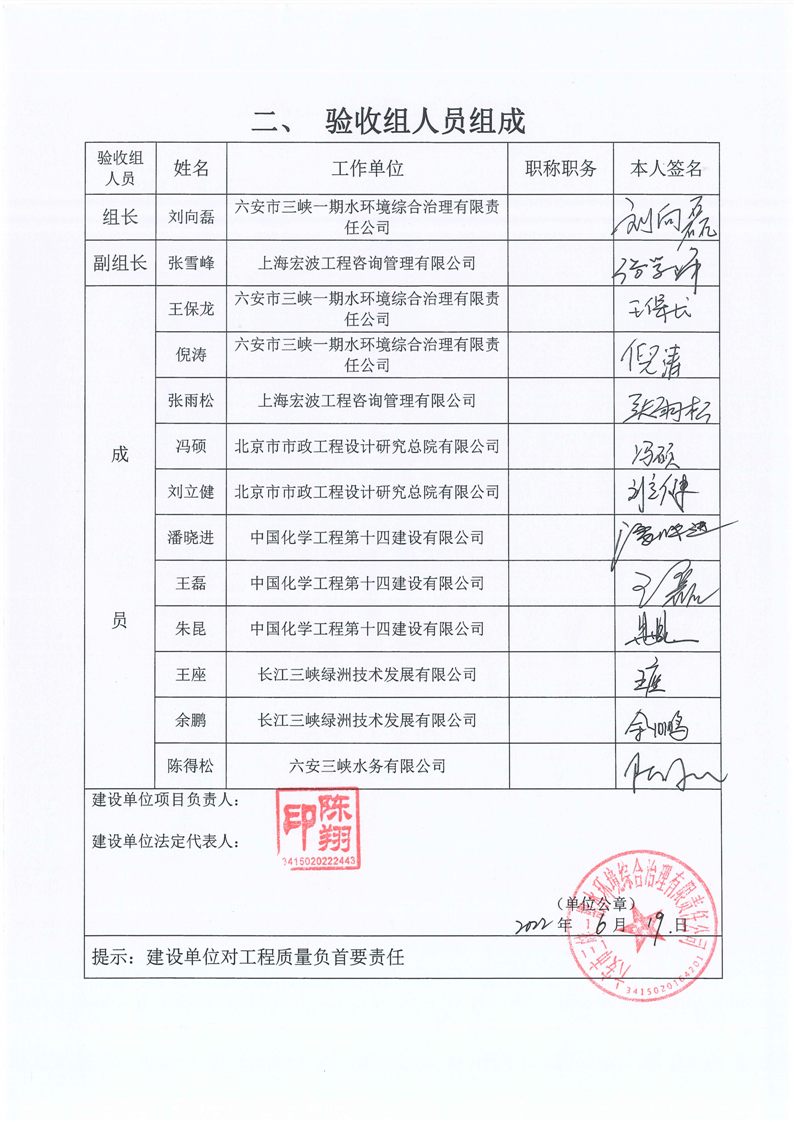 二、 验收组人员组成
验收组
人员
姓名
工作单位
职称职务
本人签名
组长
刘向磊
六安市三峡一期水环境综合治理有限责
任公司
刘向磊
副组长
张雪峰
上海宏波工程咨询管理有限公司
成
员
王保龙
六安市三峡一期水环境综合治理有限责
任公司
倪涛
六安市三峡一期水环境综合治理有限责
任公司
张雨松
上海宏波工程咨询管理有限公司
张雨松
冯硕
北京市市政工程设计研究总院有限公司
冯硕
刘立健
北京市市政工程设计研究总院有限公司
刘立健
潘晓进
中国化学工程第十四建设有限公司
潘晓进
王磊
中国化学工程第十四建设有限公司
王磊
朱昆
中国化学工程第十四建设有限公司
王座
长江三峡绿洲技术发展有限公司
王座
余鹏
长江三峡绿洲技术发展有限公司
余鹏
陈得松
六安三峡水务有限公司
建设单位项目负责人：
建设单位法定代表人：
陈翔印
3415020222443
（单位公章）
2022年 6月 19日
六安市三峡一期水环境综合治理有限责任公司
3415020164201
提示：建设单位对工程质量负首要责任